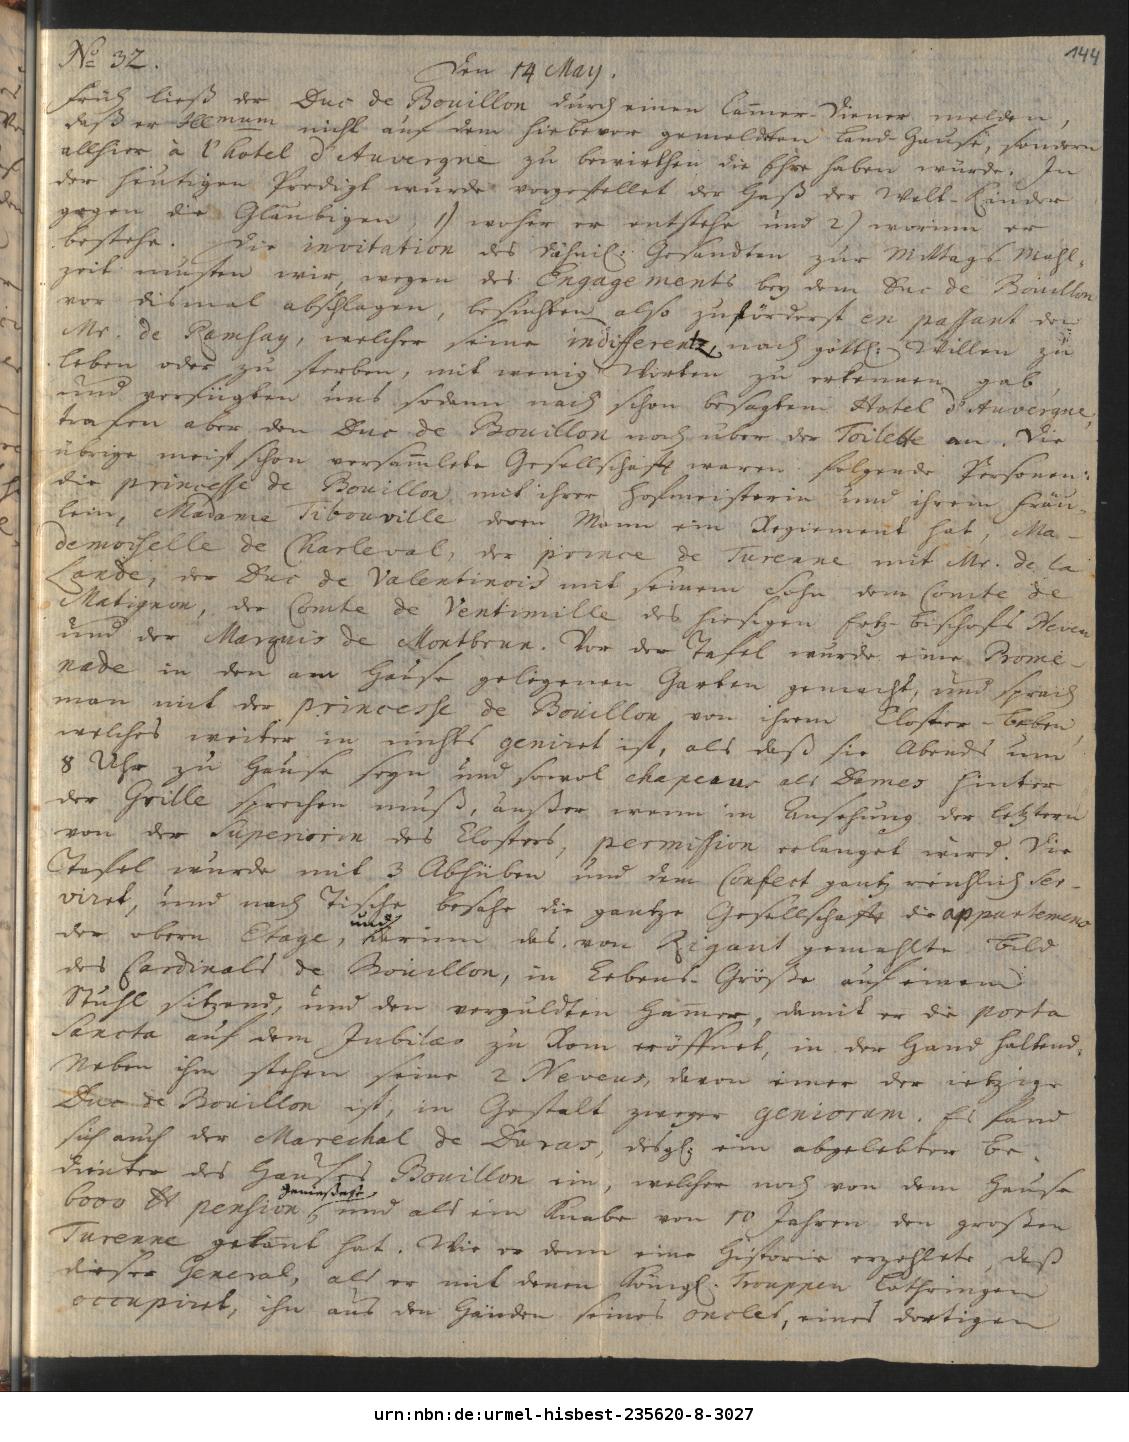 144
No 32.
Den 14 May.
Früh ließ der Duc de Bouillon durch einen Cammer-Diener melden,
daß er Illmum nicht auf dem hiebevor gemeldten Land-Hause, sondern
allhier à l'hotel d'Auvergne zu bewirthen die Ehre haben würde. In
der heutigen Predigt wurde vorgestellet der Haß der Welt-Kinder
gegen die Gläubigen 1) woher er entstehe und 2) worinn er
bestehe. Die invitation des Dähnis: Gesandten zur Mittags Mahl-
zeit musten wir, wegen des Engagements bey dem Duc de Bouillon
vor dismal abschlagen, besuchten also zuförderst en passant den
Mr. de Ramsay, welcher seine indifferentz, nach göttl: Willen zu
leben oder zu sterben, mit wenig Worten zu erkennen gab,
und verfügten uns sodann nach schon besagtem Hotel d'Auvergne,
trafen aber den Duc de Bouillon noch über der Toilette an. Die
übrige meist schon versammlete Gesellschafft waren folgende Personen:
die princesse de Bouillon mit ihrer Hofmeisterin und ihrem Fräu-
lein, Madame Tibouville deren Mann ein Regiement hat, Ma-
demoiselle de Charleval, der prince de Turenne mit Mr. de la
Lande, der Duc de Valentinois mit seinem Sohn dem Comte de
Matignon, der Comte de Ventimille des hiesigen Ertz-Bischofs Neveu
und der Marquis de Montbrun. Vor der Tafel wurde eine Prome-
nade in den am Hause gelegenen Garten gemacht, und sprach
man mit der princesse de Bouillon von ihrem Closter-Leben,
welches weiter in nichts geniret ist, als daß sie Abends um
8 Uhr zu Hause seyn und sowol chapeaux als Dames hinter
der Grille sprechen muß, außer wenn in Ansehung der letztern
von der Superiorin des Closters, permission erlanget wird. Die
Tafel wurde mit 3 Abhüben und dem Confect gantz reichlich ser-
viret, und nach Tische besahe die gantze Gesellschafft die appartemens
der obern Etage, und darinn das von Rigaut gemahlte Bild
des Cardinals de Bouillon, in Lebens-Größe auf einem
Stuhl sitzend, und den verguldten Hammer, damit er die porta
sancta auf dem Jubilæo zu Rom eröffnet, in der Hand haltend.
Neben ihm stehen seine 2 Neveus, davon einer der ietzige
Duc de Bouillon ist, in Gestalt zweyer geniorum. Es fand
sich auch der Marechal de Duras, desgl: ein abgelebter Be-
dienter des Hauses Bouillon ein, welcher noch von dem Hause
6000 tt pension genießet, und als ein Knabe von 10 Jahren den großen
Turenne gekannt hat. Wie er denn eine Historie erzehlete, daß
dieser General, als er mit denen Königl. Trouppen Lothringen
occupiret, ihn aus den Händen seines oncles, eines dortigen
urn:nbn:de:urmel-hisbest-235620-8-3027